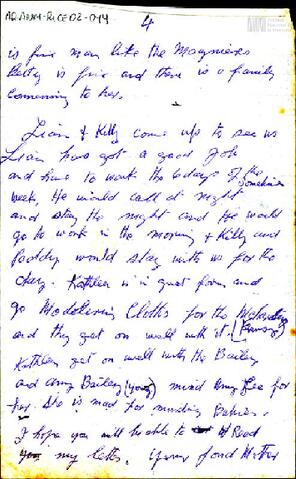 4
is fine now like the
Betty is fine and there is a family
comeing to her.
Liam & Kitty come up to see us
Liam has got a good Job
and have to work the 6 days of the
week, He would call at night sometimes
and stay the night and He would
go to work in the morning & Kitty and
Paddy would stay with us for the
day. Kathleen is in great form and
go Modeling Cloths for the
and they get on well with it.
Kathleen get on well with the Bailey
and Amy Bailey (young) mind Amy Lee for
her. She is mad for minding Babies.
I hope you will be able to Read
my letter. Your fond Mother